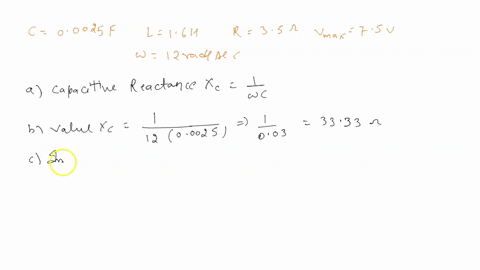 C = 0.0025F L = 1.6H R = 3.5Ω Vmax = 7.5V
ω = 12 rad/sec
a) Capacitive Reactance Xc = 1/ωC
b) Value Xc = 1/12(0.0025) ⇒ 1/0.03 = 33.33 Ω
c) In